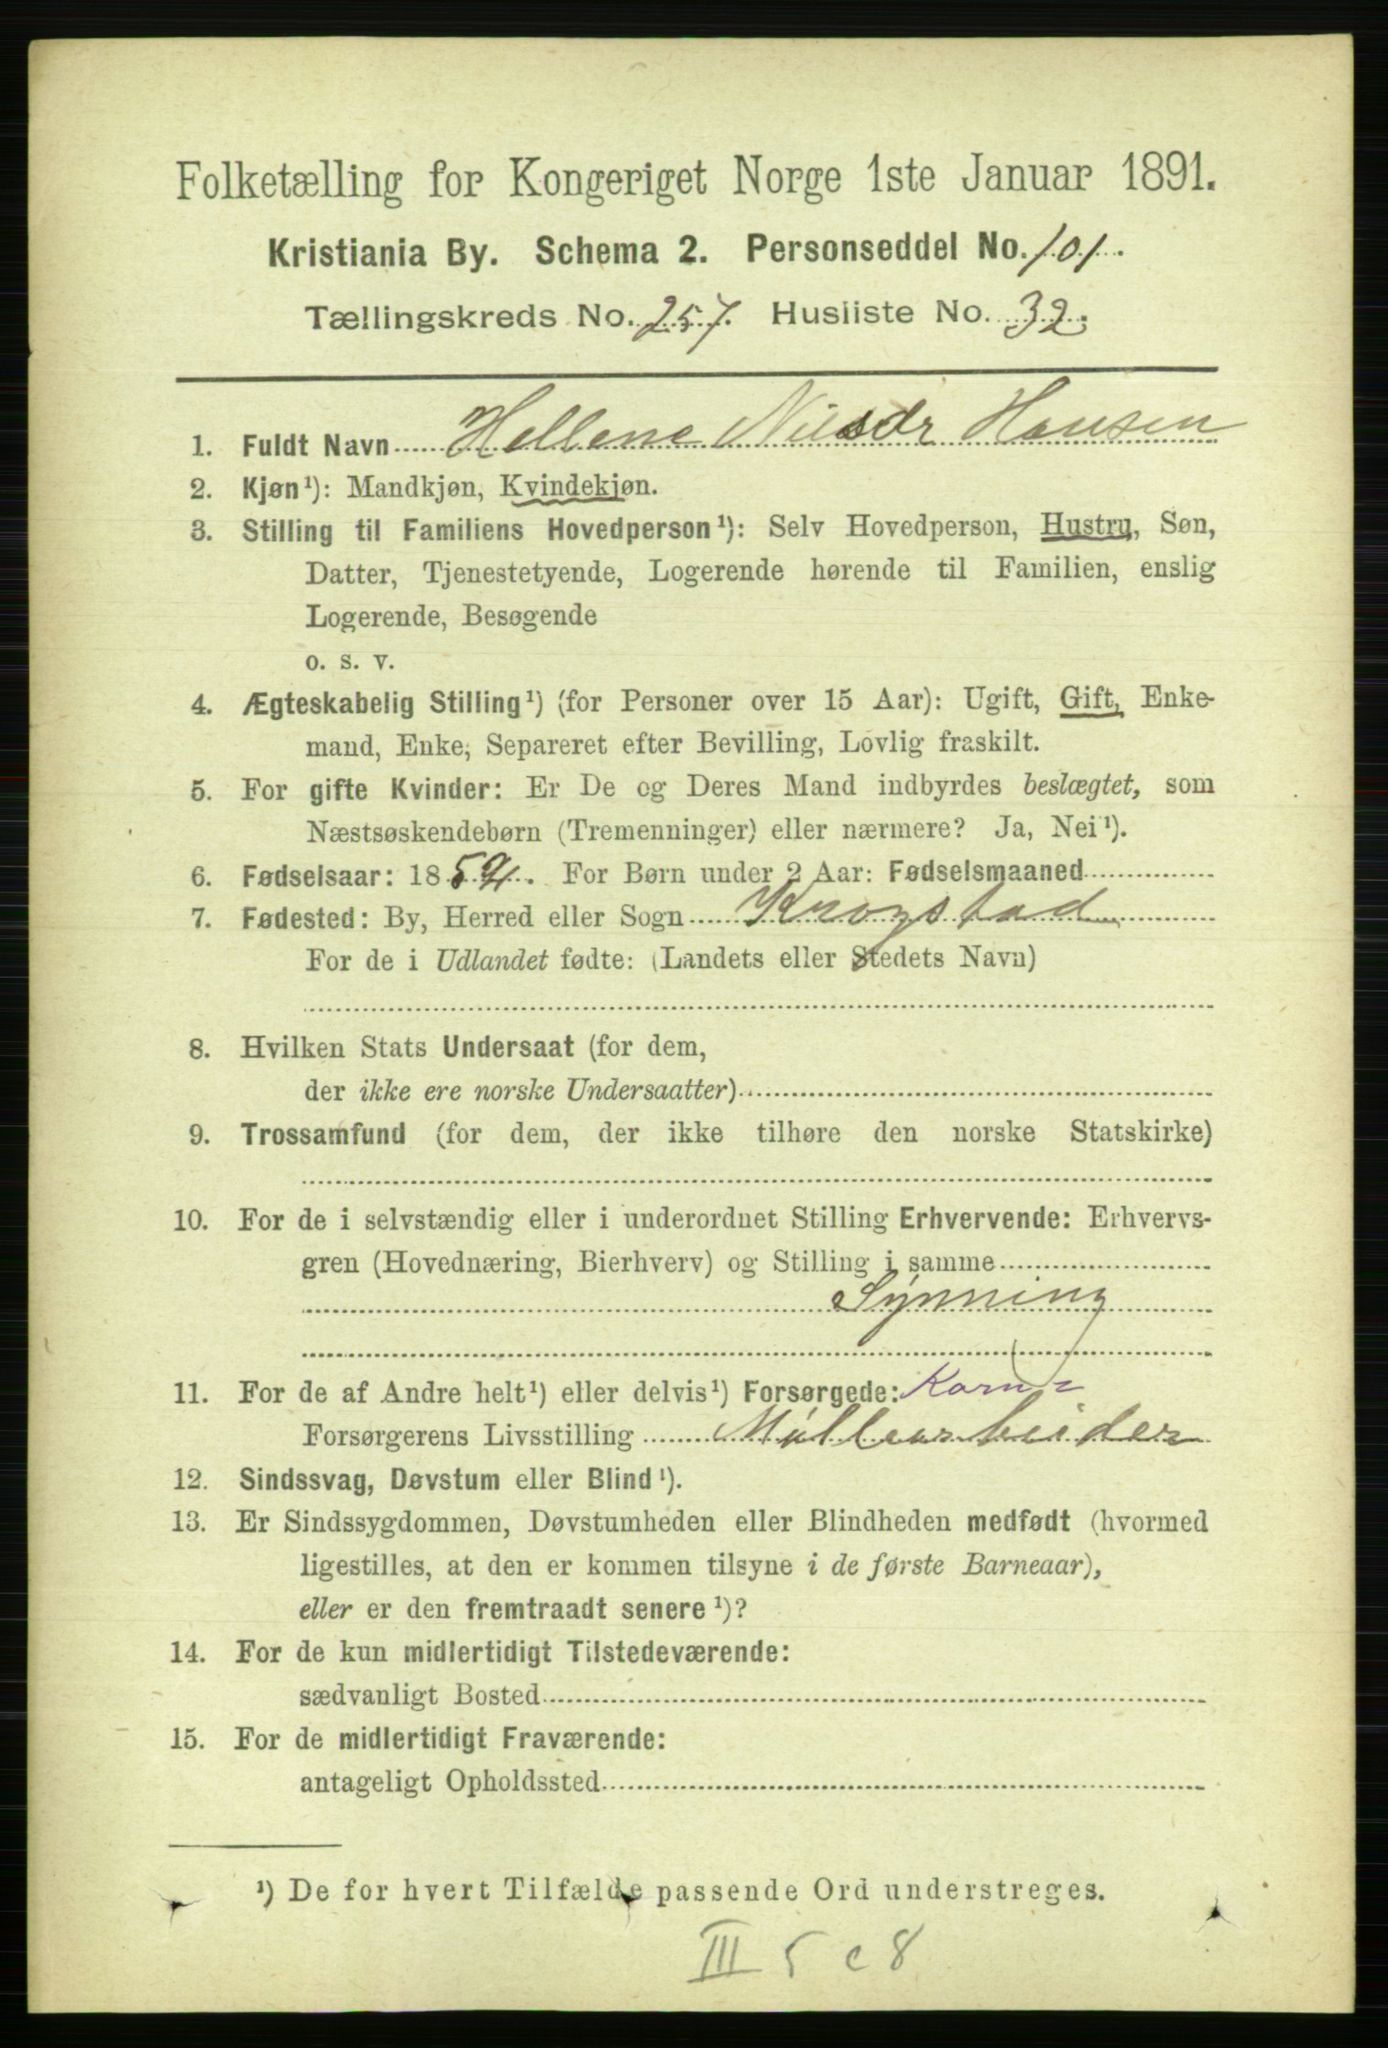 Folketælling for Kongeriget Norge 1ste Januar 1891.
Kristiania By. Schema 2. Personseddel No. 101.
Tællingskreds No. 257. Husliste No. 32.
1. Fuldt Navn Hellene Nilsdr Hansen
2. Kjøn¹): Mandkjøn, Kvindekjøn.
3. Stilling til Familiens Hovedperson¹): Selv Hovedperson, Hustru, Søn,
Datter, Tjenestetyende, Logerende hørende til Familien, enslig
Logerende, Besøgende
o. s. v.
4. Ægteskabelig Stilling¹) (for Personer over 15 Aar): Ugift, Gift, Enke-
mand, Enke, Separeret efter Bevilling, Lovlig fraskilt.
5. For gifte Kvinder: Er De og Deres Mand indbyrdes beslægtet, som
Næstsøskendebørn (Tremenninger) eller nærmere? Ja, Nei¹).
6. Fødselsaar: 1859. For Børn under 2 Aar: Fødselsmaaned
7. Fødested: By, Herred eller Sogn Krogstad
For de i Udlandet fødte: (Landets eller Stedets Navn)
8. Hvilken Stats Undersaat (for dem,
der ikke ere norske Undersaatter)
9. Trossamfund (for dem, der ikke tilhøre den norske Statskirke)
10. For de i selvstændig eller i underordnet Stilling Erhvervende: Erhvervs-
gren (Hovednæring, Bierhverv) og Stilling i samme
Synning
11. For de af Andre helt¹) eller delvis¹) Forsørgede: Korn-
Forsørgerens Livsstilling Møllearbeider
12. Sindssvag, Døvstum eller Blind¹).
13. Er Sindssygdommen, Døvstumheden eller Blindheden medfødt (hvormed
ligestilles, at den er kommen tilsyne i de første Barneaar),
eller er den fremtraadt senere¹)?
14. For de kun midlertidigt Tilstedeværende:
sædvanligt Bosted
15. For de midlertidigt Fraværende:
antageligt Opholdssted
¹) De for hvert Tilfælde passende Ord understreges.
III 5 c 8